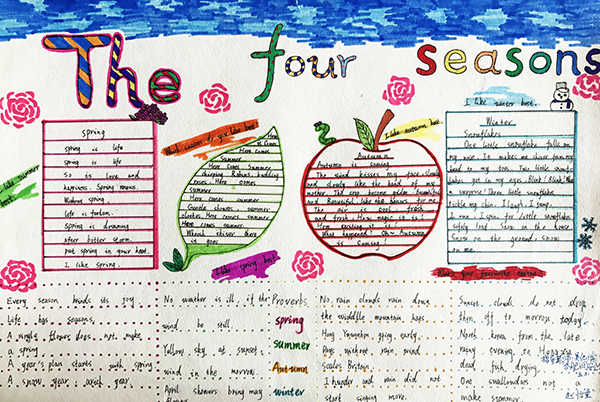 The four seasons
I like summer best.
Spring
Spring is life
spring is life
So is love and
happiness. Spring
Without spring.
life is forlorn.
Spring is drawing
after bitter storm.
put spring in your heart.
I like spring.
Which season do you like best?
Here
Here comes
Summer
Here comes Summer
chirping Robins. budding
roses. Here comes
summer
Here comes summer
showers. summer
clothes. Here comes summer
Here comes summer.
Whoosh shiver there
it goes
I like spring best.
I like autumn best.
Autumn
Autumn is coming
The wind kisses my face slowly
and closely like the hand of my
mother. The become golden
and Beautiful like the for me.
The air is cool fresh
and fresh. How magic it is!
How exciting it is!
What happened? Oh~ Autumn
is Coming!
What your favourite season?
I like winter best.
Winter
Snowflakes
One little snowflake falls on
my nose. It makes me shiver from my
head to my toes. Two little snowflakes
in my eyes. Blink! Blink! What
a surprise! Three little snowflakes
tickle my chin. I laugh. I jump.
I run. I spin. four little snowflakes
safely land. Snow on the house.
Snow on the ground. Snow
on me.
Every season brinds its joy.
Life has seasons.
A single flower does not make
a spring
A year's plan starts with spring
A snow year, a rich year.
No weather is ill, if the
wind be still.
Yellow sky at sunset,
wind in the morrow.
April showers bring may
flowers.
Proverbs
spring
summer
Autumn
winter
No rain clouds rain down
the middle mountain hats.
Hong Yunyuntou going early.
Days without rain wind
scales Britain.
I thunder and rain did not
start singing more.
Sunset clouds do not drop
then off to morrose today.
North known from the late
rainy evening to Hongxia
dead fish drying.
One swallow does not a
make summer.